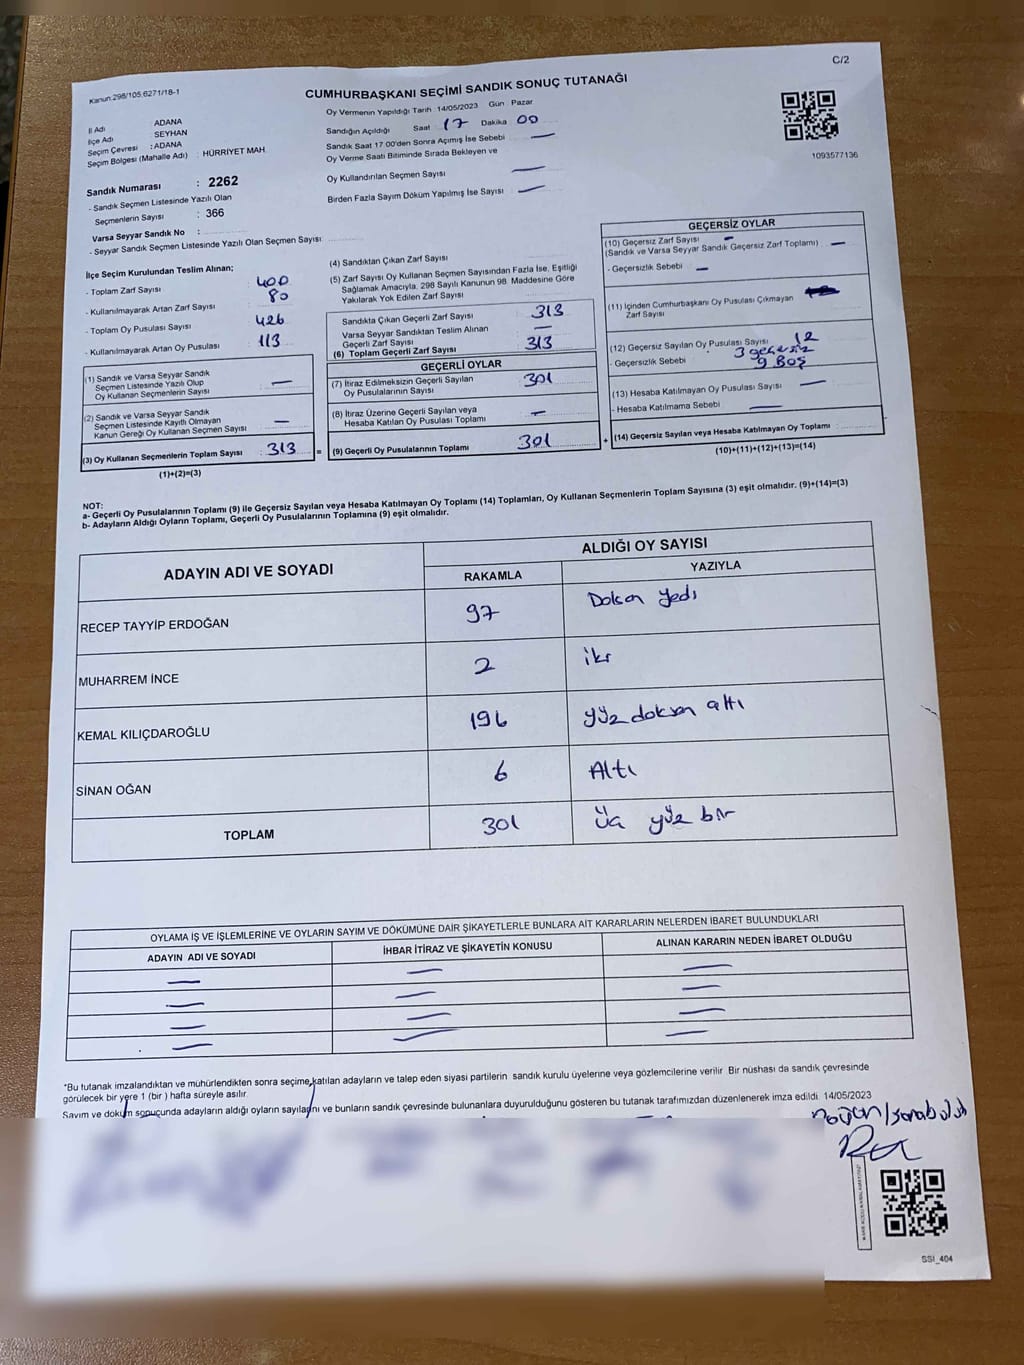 C/2
Kanun:298/105,6271/18-1
CUMHURBAŞKANI SEÇİMİ SANDIK SONUÇ TUTANAĞI
İl Adı ADANA
İlçe Adı SEYHAN
Seçim Çevresi : ADANA
Seçim Bölgesi (Mahalle Adı) : HÜRRİYET MAH.
Sandık Numarası : 2262
- Sandık Seçmen Listesinde Yazılı Olan
Seçmenlerin Sayısı : 366
Varsa Seyyar Sandık No :
- Seyyar Sandık Seçmen Listesinde Yazılı Olan Seçmen Sayısı
Oy Vermenin Yapıldığı Tarih 14/05/2023 Gün Pazar
Sandığın Açıldığı Saat 17 Dakika 00
Sandık Saat 17:00'den Sonra Açımış İse Sebebi —
Oy Verme Saati Bitiminde Sırada Bekleyen ve
Oy Kullandırılan Seçmen Sayısı —
Birden Fazla Sayım Döküm Yapılmış İse Sayısı —
1093577136
İlçe Seçim Kurulundan Teslim Alınan;
- Toplam Zarf Sayısı : 400
- Kullanılmayarak Artan Zarf Sayısı : 80
- Toplam Oy Pusulası Sayısı : 426
- Kullanılmayarak Artan Oy Pusulası : 113
(1) Sandık ve Varsa Seyyar Sandık
Seçmen Listesinde Yazılı Olup
Oy Kullanan Seçmenlerin Sayısı : —
(2) Sandık ve Varsa Seyyar Sandık
Seçmen Listesinde Kayıtlı Olmayan
Kanun Gereği Oy Kullanan Seçmen Sayısı : —
(3) Oy Kullanan Seçmenlerin Toplam Sayısı : 313 =
(1)+(2)=(3)
(4) Sandıktan Çıkan Zarf Sayısı
(5) Zarf Sayısı Oy Kullanan Seçmen Sayısından Fazla İse, Eşitliği
Sağlamak Amacıyla, 298 Sayılı Kanunun 98. Maddesine Göre
Yakılarak Yok Edilen Zarf Sayısı
Sandıkta Çıkan Geçerli Zarf Sayısı 313
Varsa Seyyar Sandıktan Teslim Alınan
Geçerli Zarf Sayısı —
(6) Toplam Geçerli Zarf Sayısı 313
GEÇERLİ OYLAR
(7) İtiraz Edilmeksizin Geçerli Sayılan
Oy Pusulalarının Sayısı : 301
(8) İtiraz Üzerine Geçerli Sayılan veya
Hesaba Katılan Oy Pusulası Toplamı : —
(9) Geçerli Oy Pusulalarının Toplamı : 301 +
GEÇERSİZ OYLAR
(10) Geçersiz Zarf Sayısı —
(Sandık ve Varsa Seyyar Sandık Geçersiz Zarf Toplamı) —
- Geçersizlik Sebebi : —
(11) İçinden Cumhurbaşkanı Oy Pusulası Çıkmayan
Zarf Sayısı
(12) Geçersiz Sayılan Oy Pusulası Sayısı 12
- Geçersizlik Sebebi : 3 geçersiz
9 BOŞ
(13) Hesaba Katılmayan Oy Pusulası Sayısı —
- Hesaba Katılmama Sebebi —
(14) Geçersiz Sayılan veya Hesaba Katılmayan Oy Toplamı
(10)+(11)+(12)+(13)=(14)
NOT:
a- Geçerli Oy Pusulalarının Toplamı (9) ile Geçersiz Sayılan veya Hesaba Katılmayan Oy Toplamı (14) Toplamları, Oy Kullanan Seçmenlerin Toplam Sayısına (3) eşit olmalıdır. (9)+(14)=(3)
b- Adayların Aldığı Oyların Toplamı, Geçerli Oy Pusulalarının Toplamına (9) eşit olmalıdır.
ADAYIN ADI VE SOYADI
ALDIĞI OY SAYISI
RAKAMLA YAZIYLA
RECEP TAYYİP ERDOĞAN 97 Doksan Yedi
MUHARREM İNCE 2 iki
KEMAL KILIÇDAROĞLU 196 yüz doksan altı
SİNAN OĞAN 6 Altı
TOPLAM 301 Üç yüz bir
OYLAMA İŞ VE İŞLEMLERİNE VE OYLARIN SAYIM VE DÖKÜMÜNE DAİR ŞİKAYETLERLE BUNLARA AİT KARARLARIN NELERDEN İBARET BULUNDUKLARI
ADAYIN ADI VE SOYADI İHBAR İTİRAZ VE ŞİKAYETİN KONUSU ALINAN KARARIN NEDEN İBARET OLDUĞU
— — —
— — —
— — —
— — —
*Bu tutanak imzalandıktan ve mühürlendikten sonra seçime katılan adayların ve talep eden siyasi partilerin sandık kurulu üyelerine veya gözlemcilerine verilir. Bir nüshası da sandık çevresinde
görülecek bir yere 1 (bir ) hafta süreyle asılır.
Sayım ve döküm sonucunda adayların aldığı oyların sayılarını ve bunların sandık çevresinde bulunanlara duyurulduğunu gösteren bu tutanak tarafımızdan düzenlenerek imza edildi. 14/05/2023
SSI_404